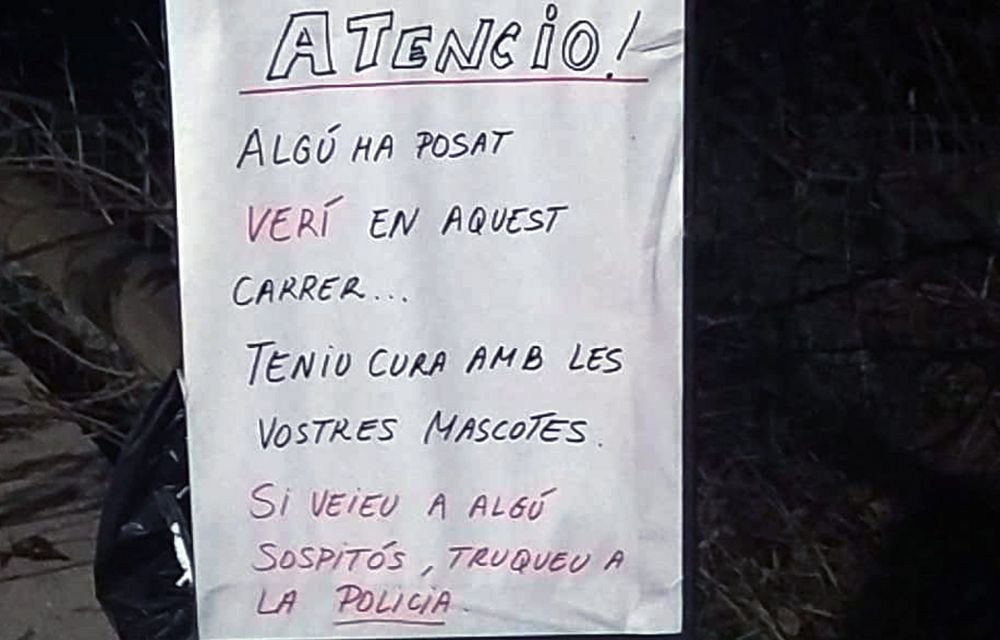 ATENCIÓ!
ALGÚ HA POSAT
VERÍ EN AQUEST
CARRER...
TENIU CURA AMB LES
VOSTRES MASCOTES.
SI VEIEU A ALGÚ
SOSPITÓS, TRUQUEU A
LA POLICIA.